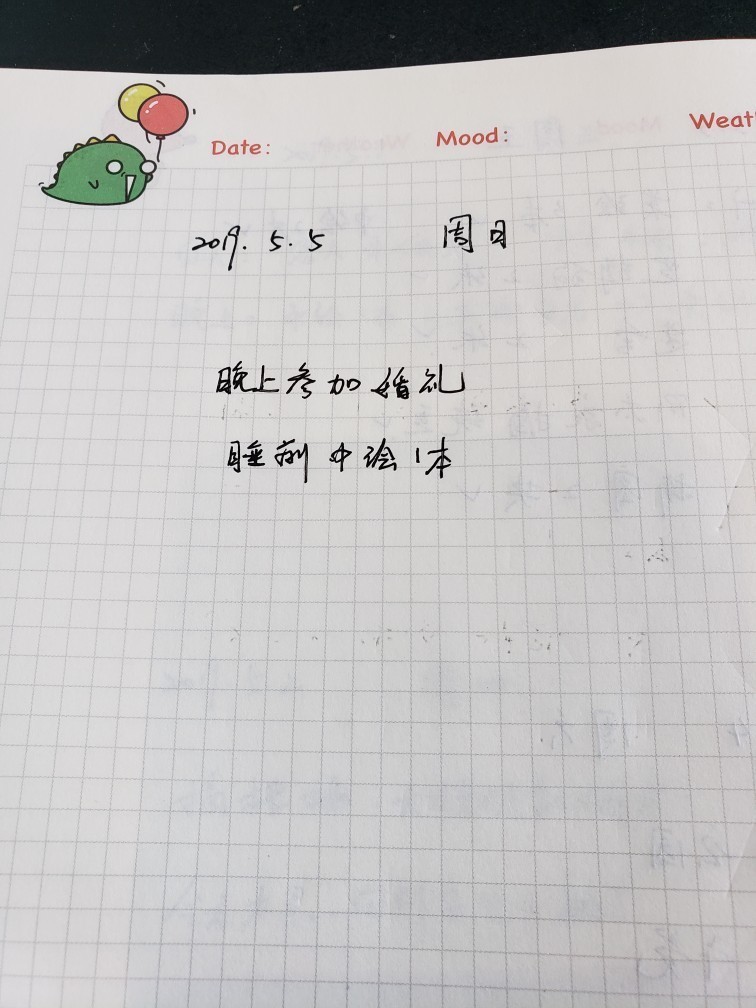 Date: Mood: Weat
2019.5.5 周日
晚上参加婚礼
睡前中绘1本